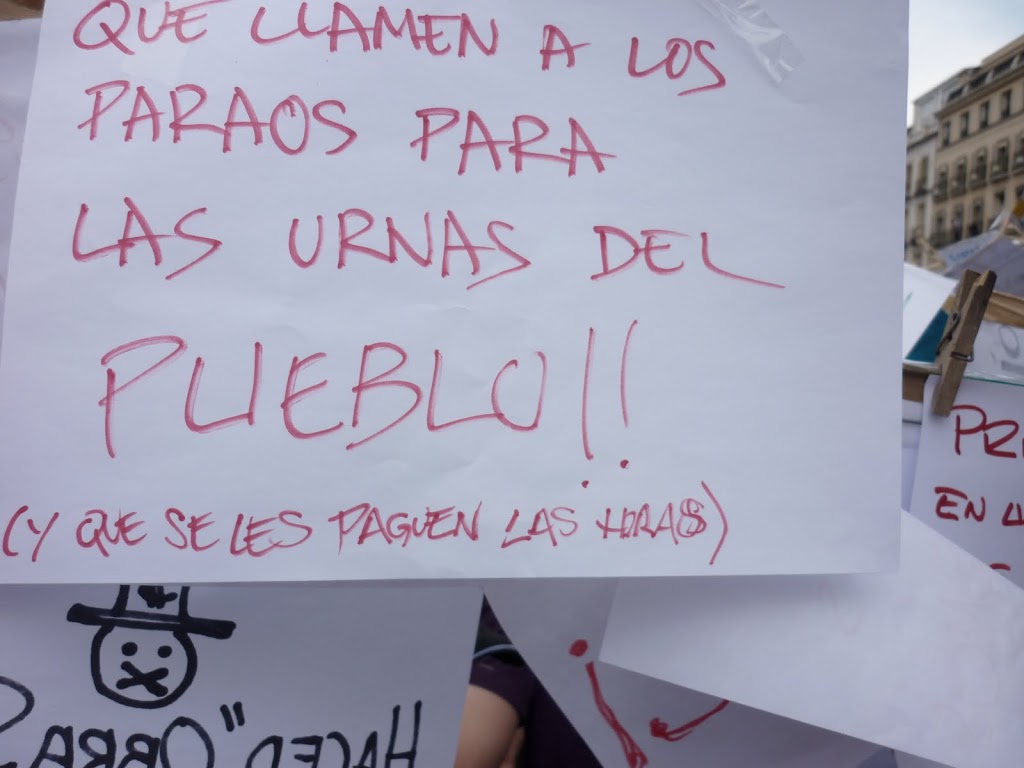 QUE LLAMEN A LOS
PARAOS PARA
LAS URNAS DEL
PUEBLO!!
(Y QUE SE LES PAGUEN LAS HORAS)
PR
EN
HACED "OBRA